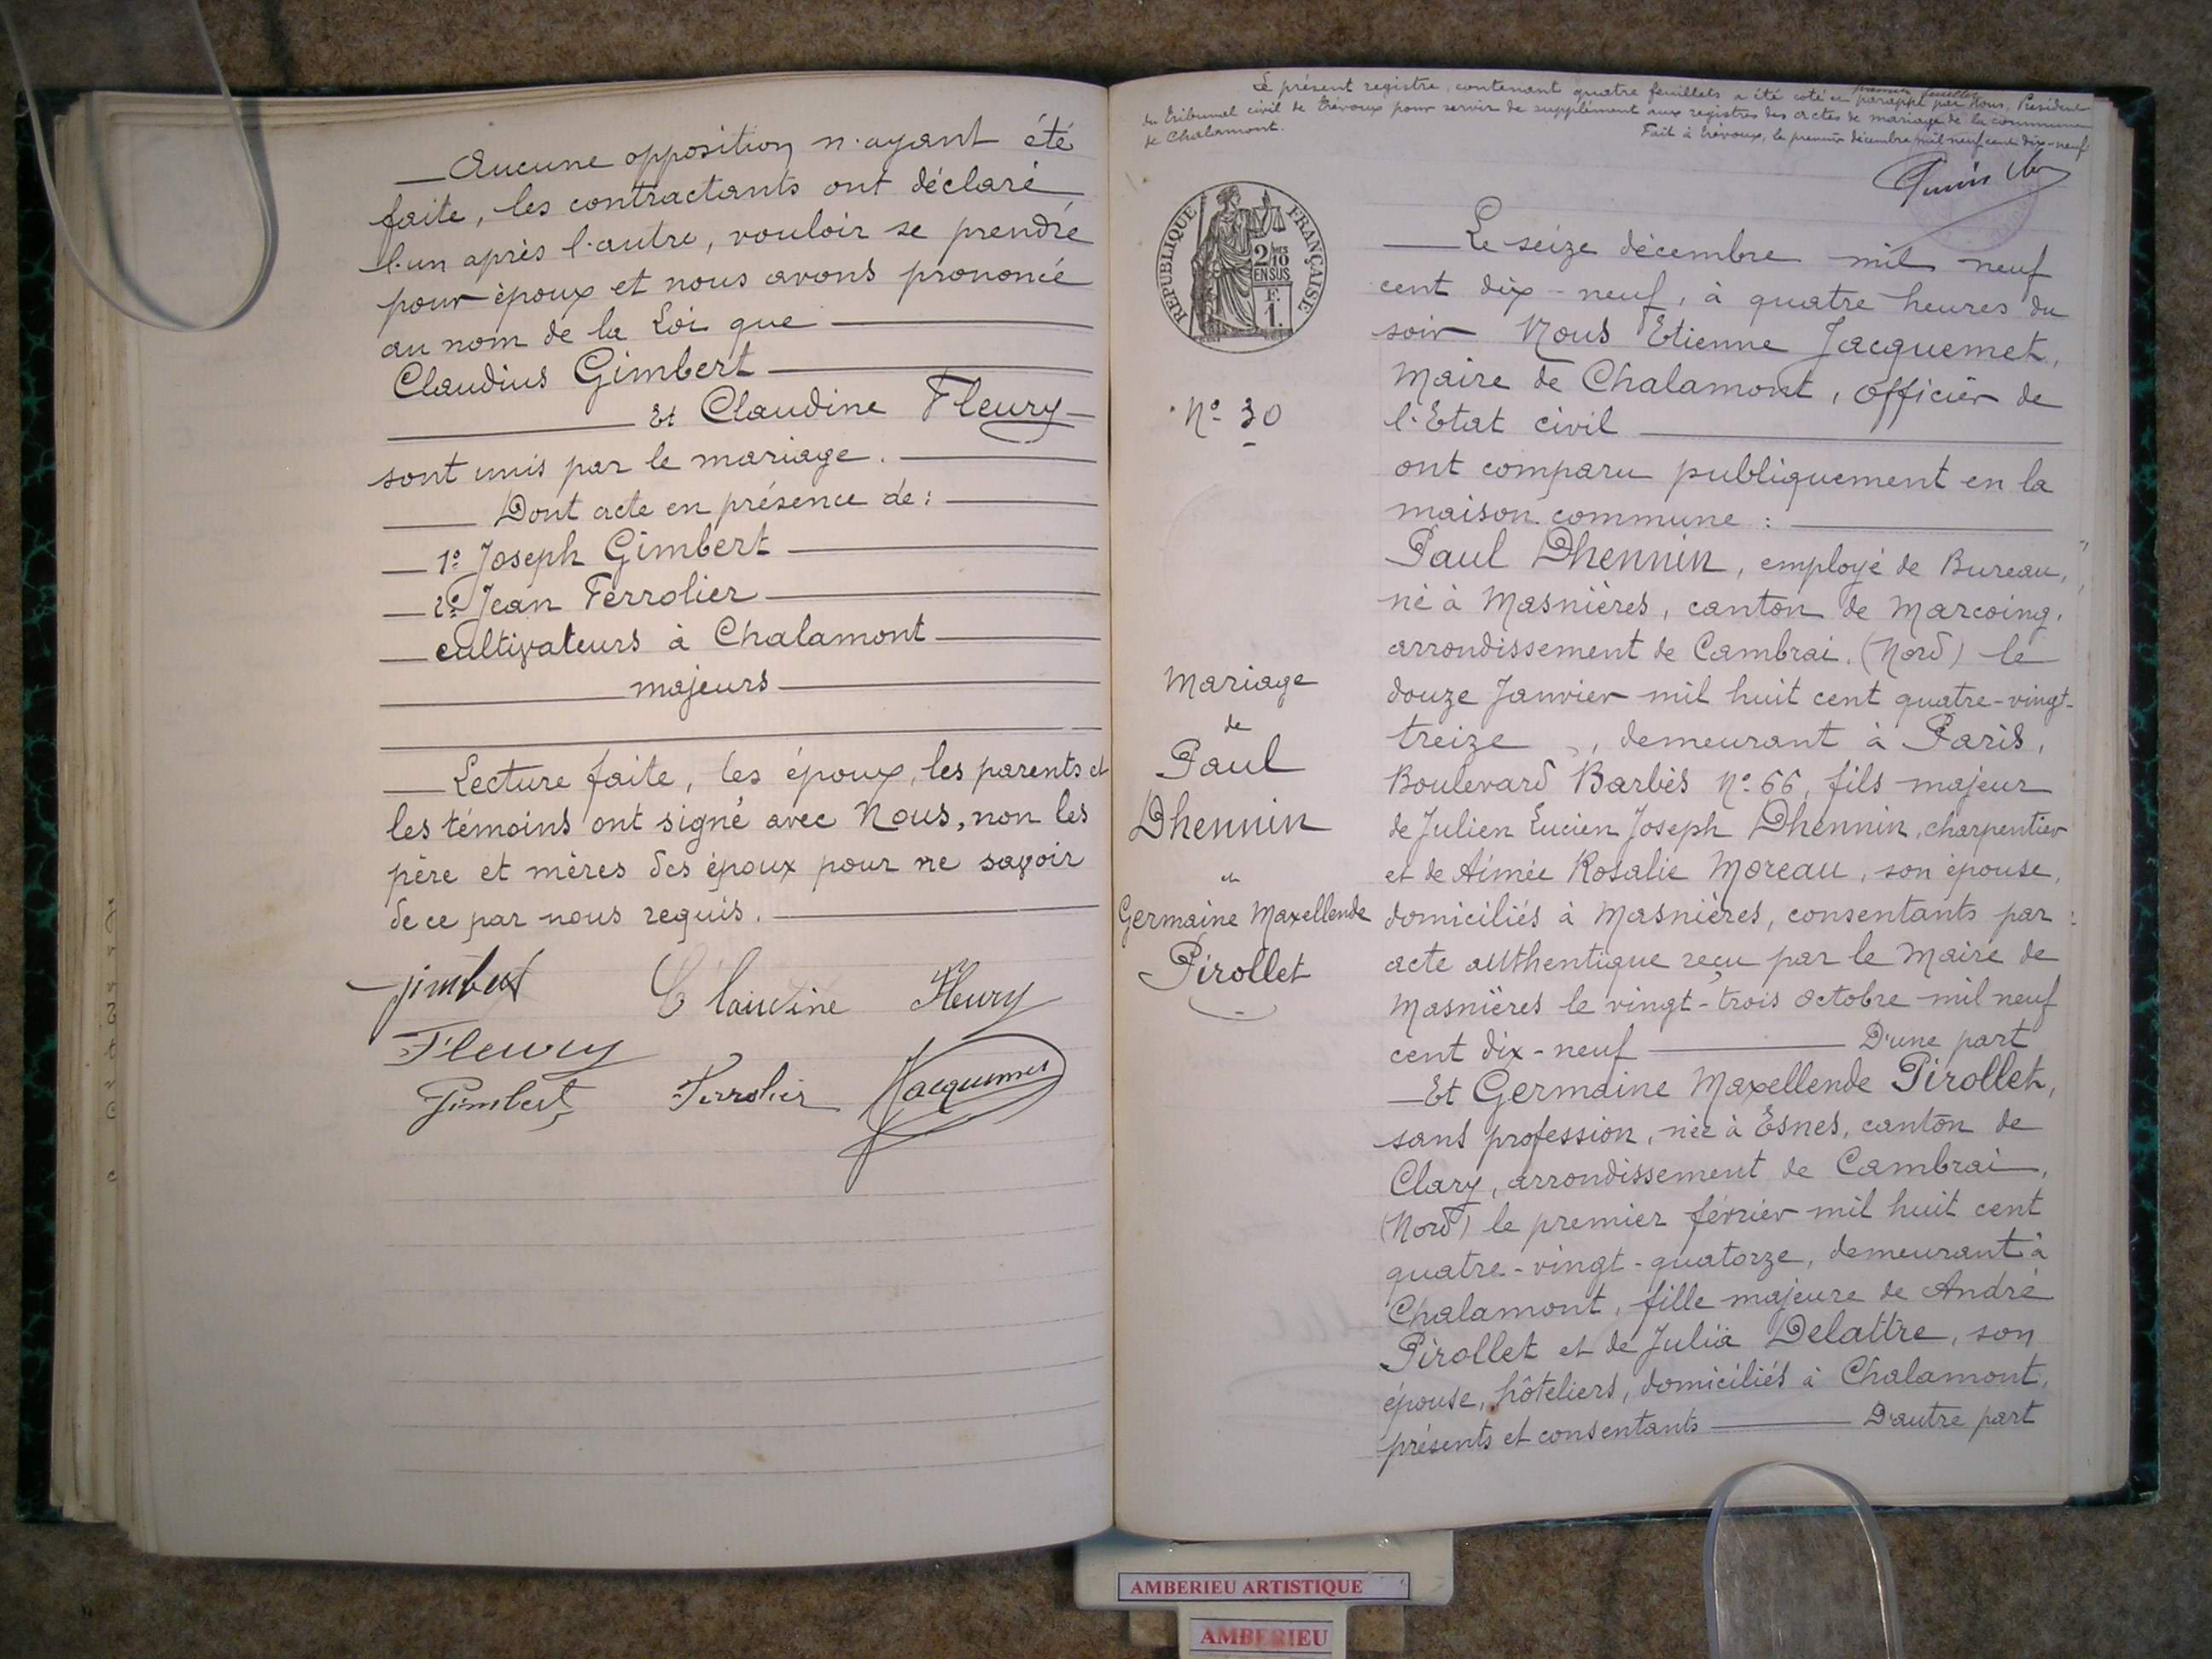 Aucune opposition n'ayant été
faite, les contractants ont déclaré
l'un après l'autre, vouloir se prendre
pour époux et nous avons prononcé
au nom de la Loi que
Claudius Gimbert
Et Claudine Fleury
sont unis par le mariage.
Dont acte en présence de :
1º Joseph Gimbert
2º Jean Ferrolier
cultivateurs à Chalamont
majeurs
Lecture faite, les époux, les parents et
les témoins ont signé avec Nous, non les
père et mères des époux pour ne savoir
de ce par nous requis.
gimbert Claudine Fleury
Fleury
Gimbert Ferrolier Jacquemet
Le présent registre, contenant quatre feuillets a été coté et paraphé par Nous, Président
du Tribunal civil de Trévoux pour servir de supplément aux registres des actes de mariage de la commune
de Chalamont.
Fait à Trévoux, le premier décembre mil neuf cent dix-neuf
REPUBLIQUE FRANÇAISE
2/10
EN SUS
F.
1.
Nº 30
Mariage
de
Paul
Dhennin
et
Germaine Maxellende
Pirollet
Le seize décembre mil neuf
cent dix-neuf, à quatre heures du
soir Nous Etienne Jacquemet,
Maire de Chalamont, officier de
l'Etat civil
ont comparu publiquement en la
maison commune :
Paul Dhennin, employé de Bureau,
né à Masnières, canton de Marcoing,
arrondissement de Cambrai. (Nord) le
douze Janvier mil huit cent quatre-vingt-
treize, demeurant à Paris,
Boulevard Barbès Nº 66, fils majeur
de Julien Lucien Joseph Dhennin, charpentier
et de Aimée Rosalie Moreau, son épouse,
domiciliés à Masnières, consentants par
acte authentique reçu par le Maire de
Masnières le vingt-trois octobre mil neuf
cent dix-neuf D'une part
Et Germaine Maxellende Pirollet,
sans profession, née à Esnes, canton de
Clary, arrondissement de Cambrai,
(Nord) le premier février mil huit cent
quatre-vingt-quatorze, demeurant à
Chalamont, fille majeure de André
Pirollet et de Julia Delattre, son
épouse, hôteliers, domiciliés à Chalamont,
présents et consentants D'autre part
AMBERIEU ARTISTIQUE
AMBERIEU